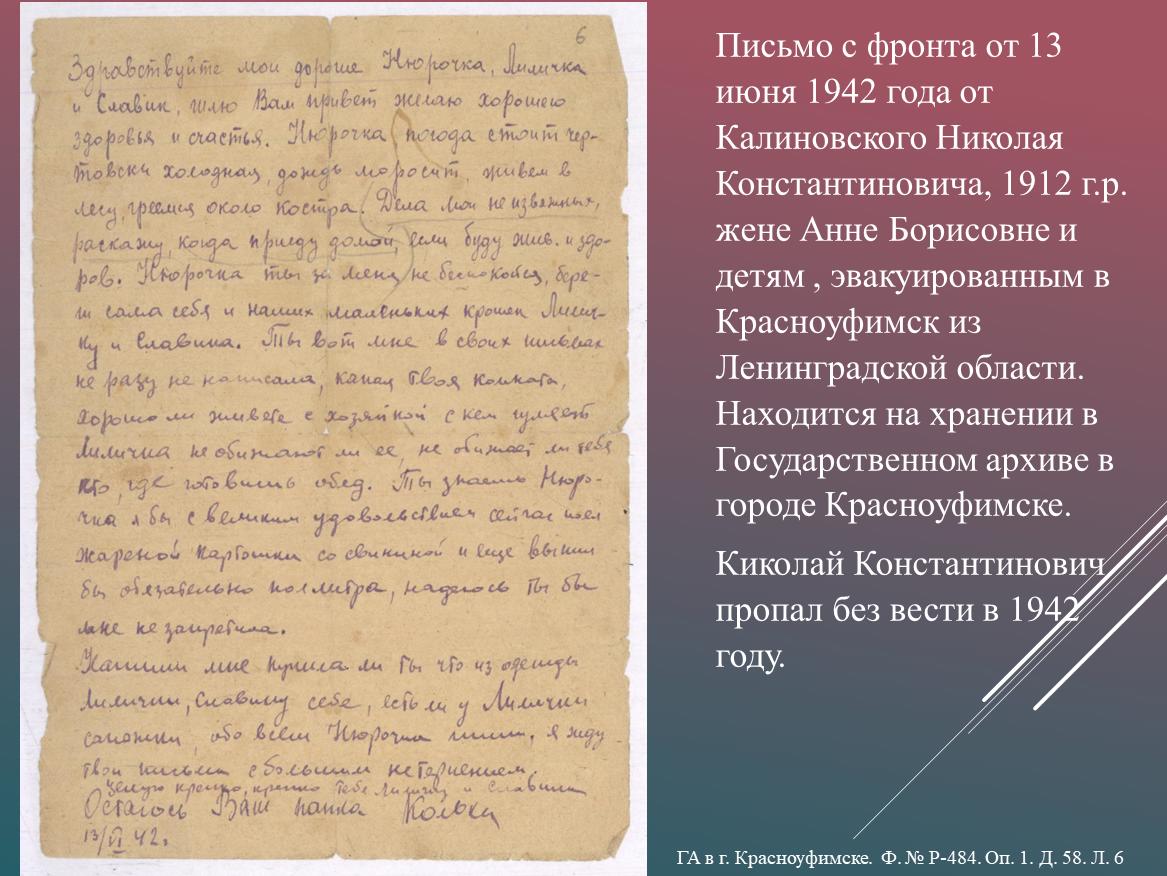 6
Здравствуйте мои дорогие Нюрочка, Лиличка
и Славик, шлю Вам привет желаю хорошего
здоровья и счастья. Нюрочка погода стоит чер-
товски холодная, дождь моросит, живем в
лесу, греемся около костра. Дела мои не изважных,
раскажу, когда приеду домой, если буду жив. и здо-
ров. Нюрочка ты за меня не беспокойся, бере-
ги сама себя и наших маленьких крошек Лилич-
ку и Славика. Ты вот мне в своих письмах
не разу не написала, какая твоя комната,
хорошо ли живете с хозяйкой с кем гуляет
Лиличка не обижают ли ее, не обижает ли тебя
кто, где готовишь обед. Ты знаешь Нюро-
чка я бы с великим удовольствием сейчас поел
жареной картошки со свининой и еще выпил
бы обязательно поллитра, надеюсь ты бы
мне не запретила.
Напиши мне купила ли ты что из одежды
Лилички, Славику себе, есть ли у Лилички
сапожки, обо всем Нюрочка пиши, я жду
твои письма с большим нетерпением,
целую крепко, крепко тебя Лиличку и Славика
Остаюсь Ваш папка Колька
13/VI 42.
Письмо с фронта от 13
июня 1942 года от
Калиновского Николая
Константиновича, 1912 г.р.
жене Анне Борисовне и
детям , эвакуированным в
Красноуфимск из
Ленинградской области.
Находится на хранении в
Государственном архиве в
городе Красноуфимске.
Киколай Константинович
пропал без вести в 1942
году.
ГА в г. Красноуфимске. Ф. № Р-484. Оп. 1. Д. 58. Л. 6